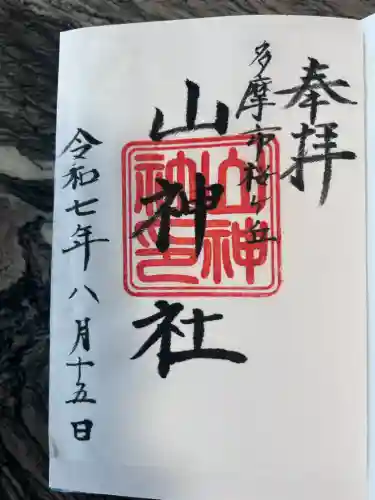 奉拝
多摩市桜ヶ丘
山神社
山神
神印
令和七年八月十五日